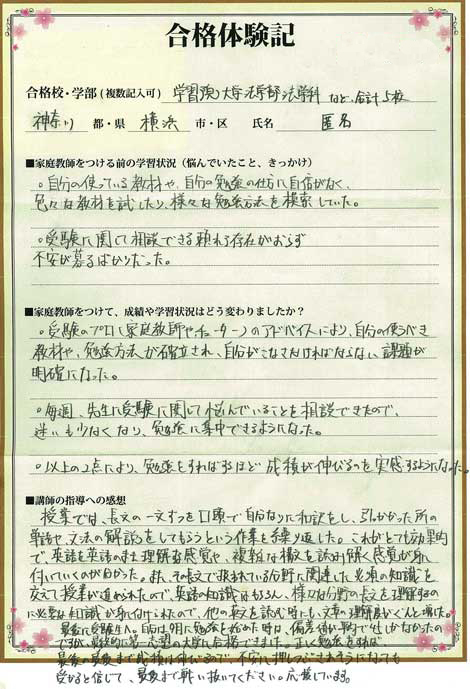 合格体験記
合格校・学部(複数記入可) 学習院大学法学部法学科 など、合計5校
神奈川 都・県 横浜 市・区 氏名 匿名
■家庭教師をつける前の学習状況(悩んでいたこと、きっかけ)
○自分の使っている教材や、自分の勉強の仕方に自信がなく、
色々な教材を試したり、様々な勉強方法を模索していた。
○受験に関して相談できる頼れる存在がおらず
不安が募るばかりだった。
■家庭教師をつけて、成績や学習状況はどう変わりましたか?
○受験のプロ(家庭教師やチューター)のアドバイスにより、自分の使うべき
教材や、勉強方法が確立され、自分がこなさなければならない課題が
明確になった。
○毎週、先生に受験に関して悩んでいることを相談できたので、
迷いも少なくなり、勉強に集中できるようになった。
○以上の2点により、勉強をすればするほど成績が伸びるのを実感するようになった。
■講師の指導への感想
授業では、長文の一文ずつを口頭で自分なりに和訳をし、引っかかった所の
単語や文法の解説をしてもらうという作業を繰り返した。これがとても効果的
で、英語を英語のまま理解する感覚や、複雑な構文を読み解く感覚が身に
付いていくのが分かった。また、その長文で扱われている分野に関連した必須の知識を
交えて授業が進められたので、英語の知識はもちろん、様々な分野の長文を理解するの
に必要な知識が身に付けられたので、他の英文を読む時にも、文章の理解度がぐんと増した。
最後に受験生へ。自分は 月に勉強を始めた時は、偏差値が 前後しかなかったの
ですが、最終的に第一志望の大学に合格できました。正しく勉強をすれば、
最後の最後まで成績は伸びるので、不安に押しつぶされそうになっても
受かると信じて、最後まで戦い抜いてください。応援しています。